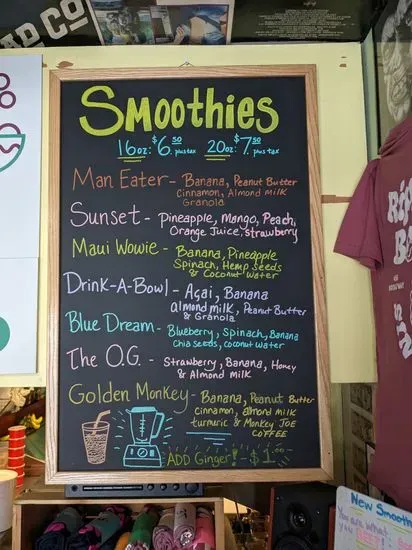 AD CO
SMOOTHIES
16oz: $6.50 plus tax 20oz: $7.50 plus tax
MAN EATER - BANANA, PEANUT BUTTER
CINNAMON, ALMOND MILK
GRANOLA
SUNSET - PINEAPPLE, MANGO, PEACH,
ORANGE JUICE, STRAWBERRY
MAUI WOWIE - BANANA, PINEAPPLE
SPINACH, HEMP SEEDS
& COCONUT WATER
DRINK-A-BOWL - AÇAI, BANANA
almond milk, PEANUT BUTTER
& GRANOLA
BLUE DREAM - BLUEBERRY, SPINACH, BANANA
CHIA SEEDS, COCONUT WATER
THE O.G. - STRAWBERRY, BANANA, HONEY
& ALMOND MILK
GOLDEN MONKEY - BANANA, PEANUT BUTTER
cinnamon, almond milk
turmeric & MONKEY JOE
COFFEE
ADD GINGER! - $1.00
New Smooth
You are what
you